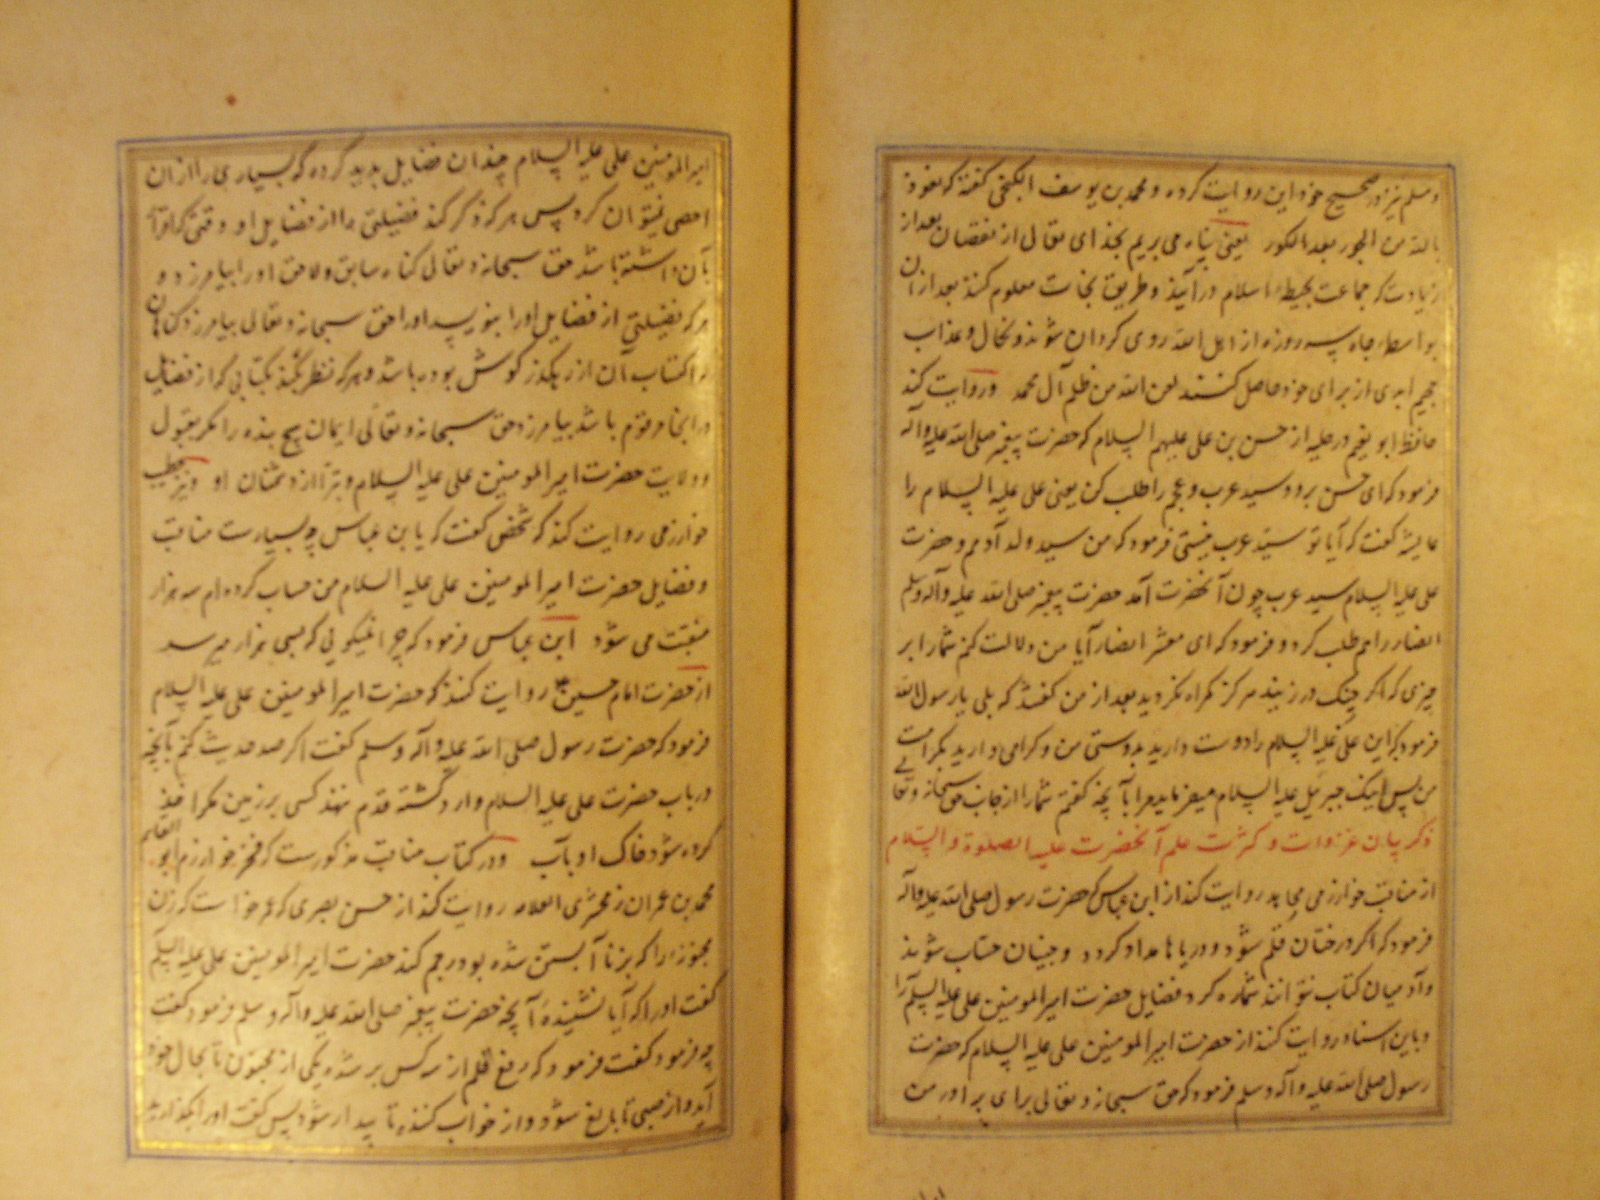 و مسلم نیز در صحیح خود این روایت کرده و محمد بن یوسف الکنجی گفته که نعوذ
بالله من الحور بعد الکور یعنی پناه می بریم بخدای تعالی از نقصان بعد از
زیادت که جماعت بحیطه اسلام درآیند و طریق نجات معلوم کنند بعد از آن
بواسطه جاه سه روزه از اهل الله روی گردان شوند و نکال و عذاب
جحیم ابدی از برای خود حاصل کنند لعن الله من ظلم آل محمد و روایت کند
حافظ ابو نعیم در حلیه از حسن بن علی علیهم السلام که حضرت پیغمبر صلی الله علیه وآله
فرمود که ای حسن برو و سید عرب و عجم را طلب کن یعنی علی علیه السلام را
عایشه گفت که آیا تو سید عرب نیستی فرمود که من سید ولد آدمم و حضرت
علی علیه السلام سید عرب چون آنحضرت آمد حضرت پیغمبر صلی الله علیه وآله وسلم
انصار را هم طلب کرد و فرمود که ای معشر انصار آیا من دلالت کنم شما را بر
چیزی که اگر چنگ در زنید هرگز گمراه نگردید بعد از من گفتند که بلی یا رسول الله
فرمود که این علی علیه السلام را دوست دارید بدوستی من و گرامی دارید بکرامت
من پس اینک جبرئیل علیه السلام میفرماید مرا بآنچه گفتم شما را از جانب حق سبحانه و تعالی
ذکر بیان غزوات و کثرت علم آنحضرت علیه الصلوة والسلام
از مناقب خوارزمی مجاهد روایت کند از ابن عباس که حضرت رسول صلی الله علیه وآله
فرمود که اگر درختان قلم شود و دریاها مداد گردد و جنیان حساب شوند
و آدمیان کتاب نتوانند شماره کرد فضایل حضرت امیرالمومنین علی علیه السلام را
و باین اسناد روایت کنند از حضرت امیرالمومنین علی علیه السلام که حضرت
رسول صلی الله علیه وآله وسلم فرمود که حق سبحانه و تعالی برای برادر من
امیرالمومنین علی علیه السلام چندان فضایل پدید کرده که بسیاری را از آن
احصی نتوان کرد پس هر که ذکر کند فضیلتی را از فضایل او و وقتی که اقرار
بآن داشته باشد حق سبحانه و تعالی گناه سابق و لاحق او را بیامرزد و
هر که فضیلتی از فضایل او را بنویسد او را حق سبحانه و تعالی بیامرزد گناهان
که اکتساب آن از رهگذر گوش بوده باشد و هر که نظر کند بکتابی که از فضایل
در انجا مرقوم باشد بیامرزد حق سبحانه و تعالی ایمان هیچ بنده را مگر بقبول
و ولایت حضرت امیرالمومنین علی علیه السلام و تبرا از دشمنان او و نیز خطیب
خوارزمی روایت کند که شخصی گفت که یا بن عباس چه بسیارست مناقب
و فضایل حضرت امیرالمومنین علی علیه السلام من حساب کرده ام سه هزار
منقبت می شود ابن عباس فرمود که چرا نمیگوئی که بسی هزار میرسد
از حضرت امام حسین روایت کنند که حضرت امیرالمومنین علی علیه السلام
فرمود که حضرت رسول صلی الله علیه وآله وسلم گفت اگر صد حدیث کنم بآنچه
در باب حضرت علی علیه السلام وارد گشته قدم ننهد کسی بر زمین مگر
کرده شود خاک او بآب و در کتاب مناقب مذکورست که فخر خوارزم ابو القاسم
محمد بن عمران زمخشری العلامه روایت کند از حسن بصری که عمر خواست که زن
مجنونه را که بزنا آبستن شده بود رجم کند حضرت امیرالمومنین علی علیه السلام
گفت او را که آیا نشنیده آنچه حضرت پیغمبر صلی الله علیه وآله وسلم فرمود گفت
چه فرمود گفت فرمود که رفع قلم از سه کس بر شده یکی از مجنون تا بحال خود
آید و از صبی تا بالغ شود و از خواب کننده تا بیدار شود پس گفت او را بگذارید